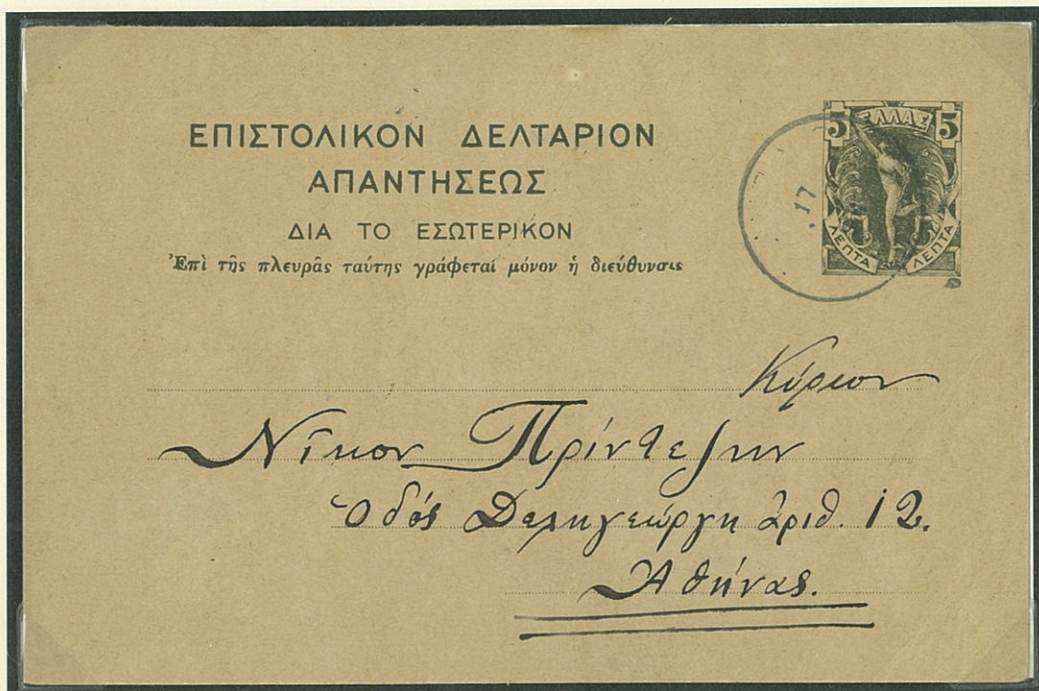 ΕΠΙΣΤΟΛΙΚΟΝ ΔΕΛΤΑΡΙΟΝ
ΑΠΑΝΤΗΣΕΩΣ
ΔΙΑ ΤΟ ΕΣΩΤΕΡΙΚΟΝ
Ἐπὶ τῆς πλευρᾶς ταύτης γράφεται μόνον ἡ διεύθυνσις
5 ΕΛΛΑΣ 5
ΛΕΠΤΑ ΛΕΠΤΑ
17
Κύριον
Νῖκον Πρίντεζην
Ὁδός Δεληγεώργη ἀριθ. 12.
Ἀθήνας.